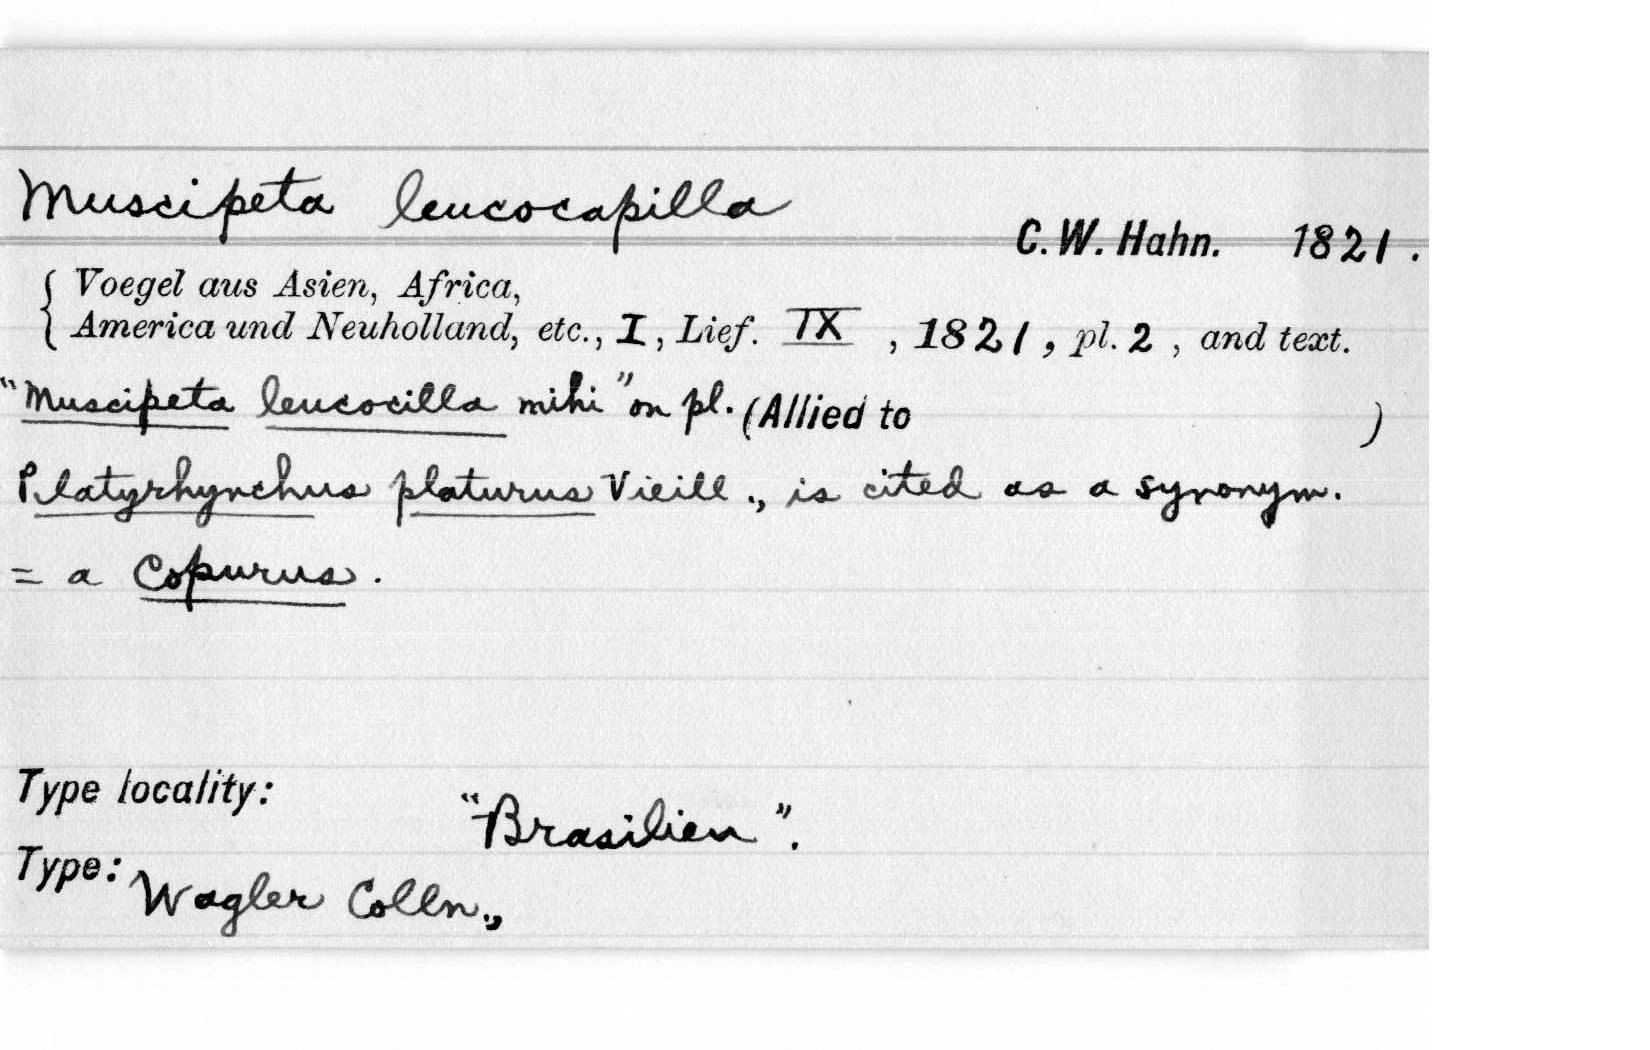 Muscipeta leucocapilla
C. W. Hahn. 1821.
{ Voegel aus Asien, Africa,
America und Neuholland, etc., I, Lief. IX, 1821, pl. 2, and text.
"Muscipeta leucocilla mihi" on pl. (Allied to )
Platyrhynchus platurus Vieill., is cited as a synonym.
= a Copurus.
Type locality:
"Brasilien".
Type: Wagler Colln.,